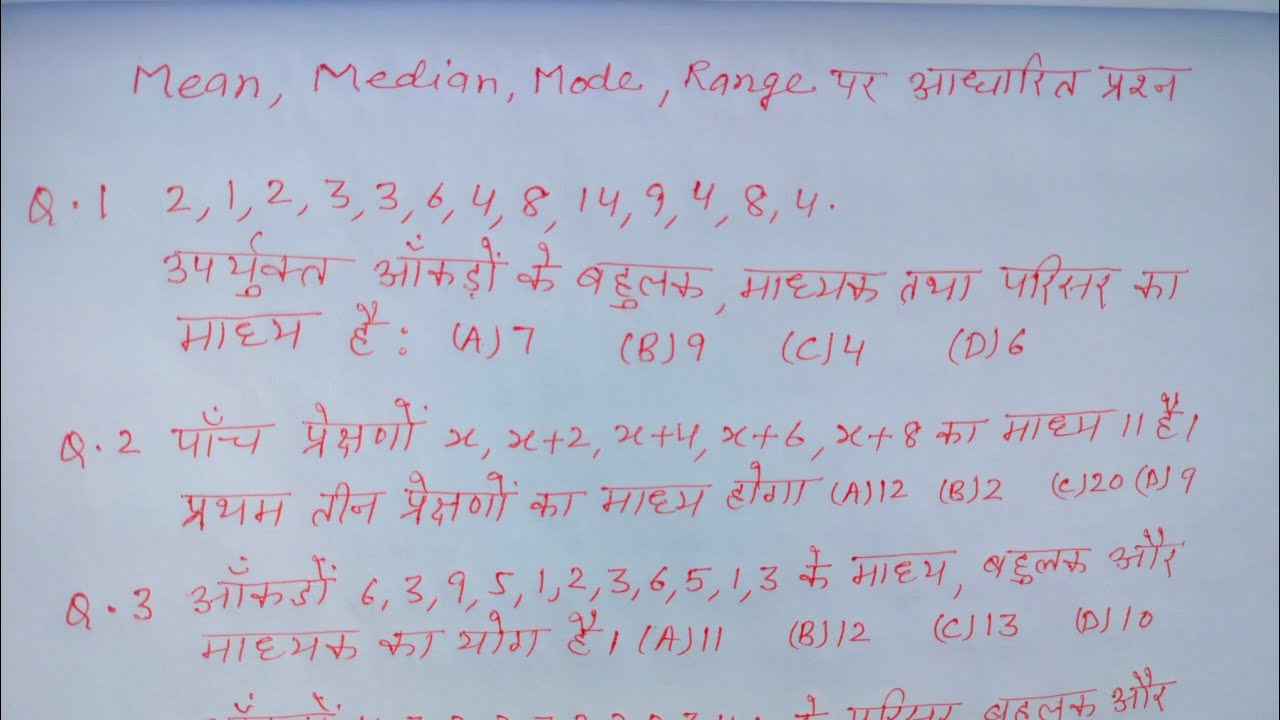 Mean, Median, Mode, Range पर आधारित प्रश्न
Q.1 2, 1, 2, 3, 3, 6, 4, 8, 14, 9, 4, 8, 4.
उपर्युक्त आँकड़ों के बहुलक, माध्यक तथा परिसर का
माध्य है: (A) 7 (B) 9 (C) 4 (D) 6
Q.2 पाँच प्रेक्षणों x, x+2, x+4, x+6, x+8 का माध्य 11 है।
प्रथम तीन प्रेक्षणों का माध्य होगा (A) 12 (B) 2 (C) 20 (D) 9
Q.3 आँकडों 6, 3, 9, 5, 1, 2, 3, 6, 5, 1, 3 के माध्य, बहुलक और
माध्यक का योग है। (A) 11 (B) 12 (C) 13 (D) 10
के परिसर बहुलक और